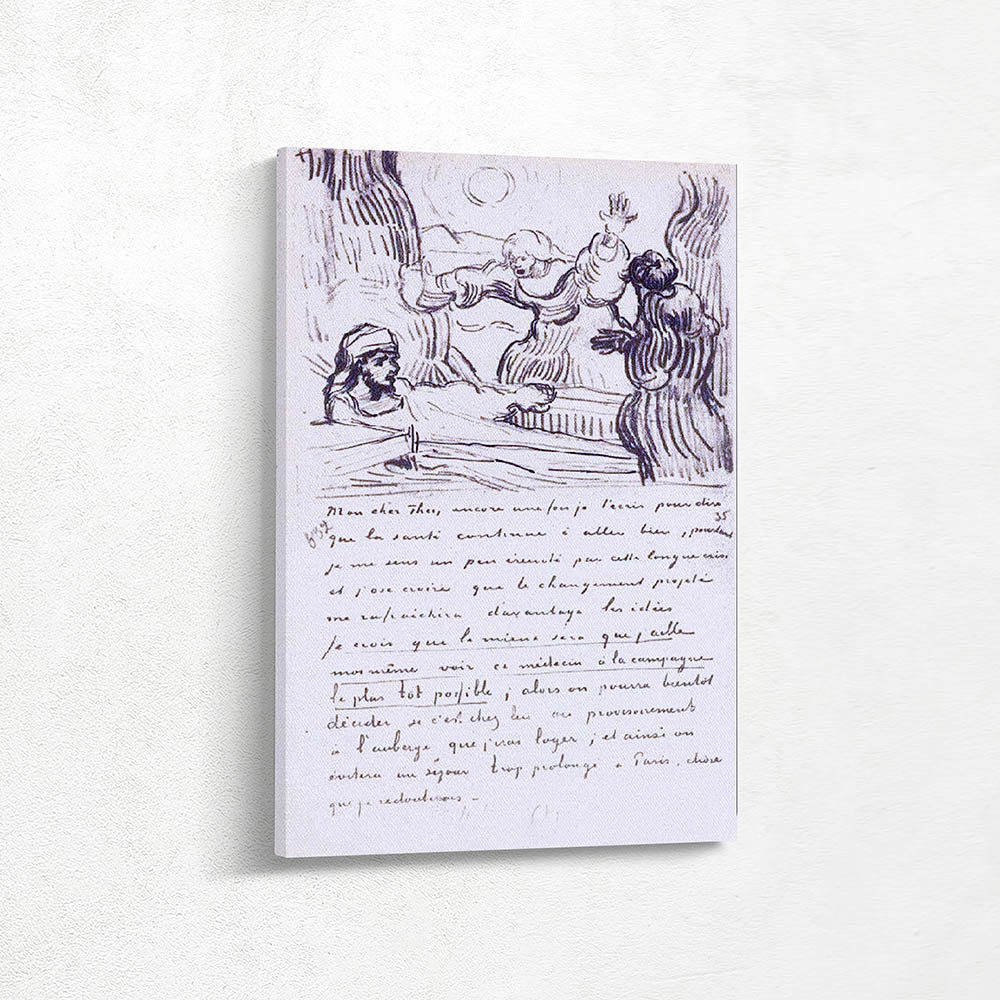 Mon cher Theo, encore une fois je t'écris pour dire
35
632
que la santé continue à aller bien, pourtant
je me sens un peu éreinté par cette longue crise
et j'ose croire que le changement projeté
me rafraichira davantage les idées
Je crois que le mieux sera que j'aille
moi même voir ce médecin à la campagne
le plus tôt possible; alors on pourra bientôt
décider si c'est chez lui ou provisoirement
à l'auberge que j'irai loger; et ainsi on
évitera un séjour trop prolongé à Paris, chose
que je redouterais.-